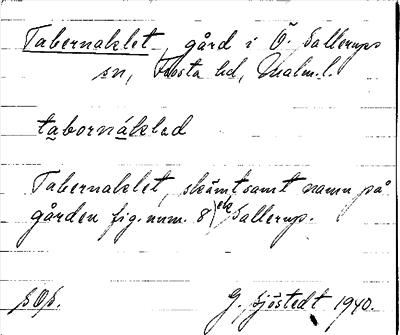 Tabernaklet, gård i Ö. Sallerups
sn, Frosta hd, Malm.l.
tabornáklad
Tabernaklet, skämtsamt namn på
gården fig. num. 8) Sallerup.
G. Sjöstedt 1940.